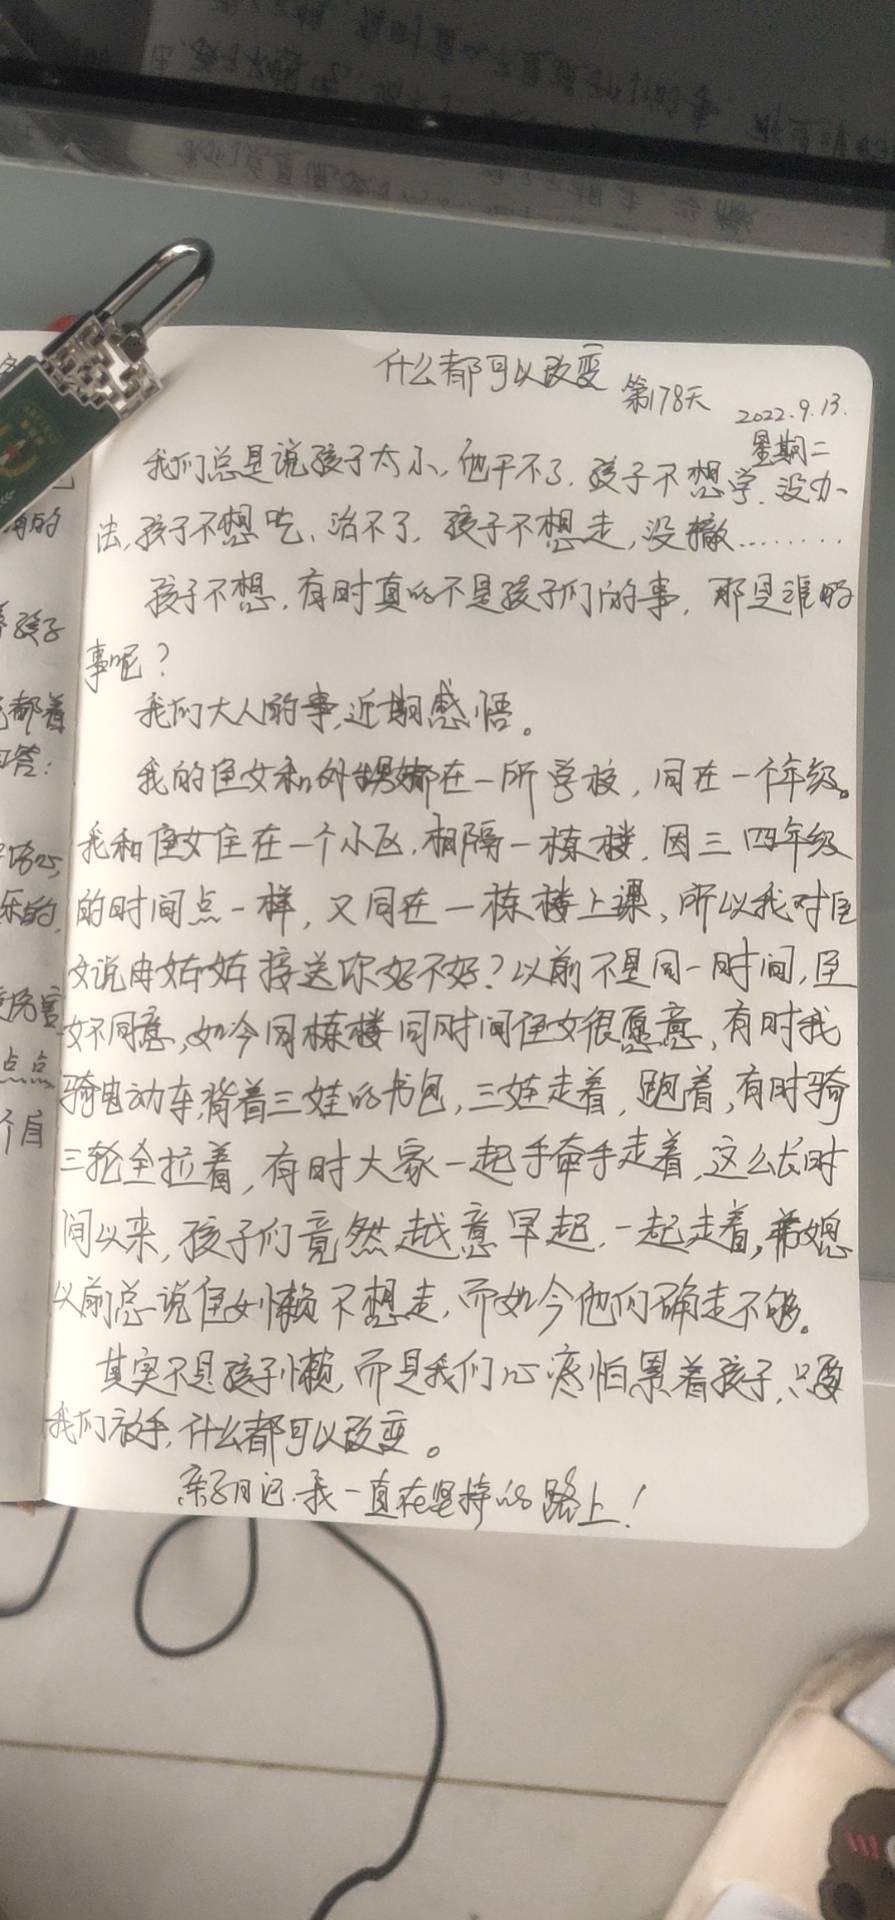 什么都可以改变
第178天
2022.9.13.
星期二
我们总是说孩子太小,他干不了.孩子不想学.没办
法,孩子不想吃、治不了,孩子不想走,没撤........
孩子不想,有时真的不是孩子们的事,那是谁的
事呢?
我们大人的事,近期感悟。
我的侄女和外甥都在一所学校,同在一个年级。
我和侄女住在一个小区,相隔一栋楼,因三四年级
的时间点一样,又同在一栋楼上课,所以我对侄
女说由姑姑接送你好不好?以前不是同一时间,侄
女不同意,如今同栋楼同时间侄女很愿意,有时我
骑电动车,背着三娃的书包,三娃走着,跑着,有时骑
三轮全拉着,有时大家一起手牵手走着,这么长时
间以来,孩子们竟然越意早起,一起走着,弟媳
以前总说侄女懒不想走,而如今他们确走不够。
其实不是孩子懒,而是我们心疼怕累着孩子,只要
我们放手,什么都可以改变。
亲子日记.我一直在坚持的路上!
孩子
都着
答:
乐的,
点点
个自